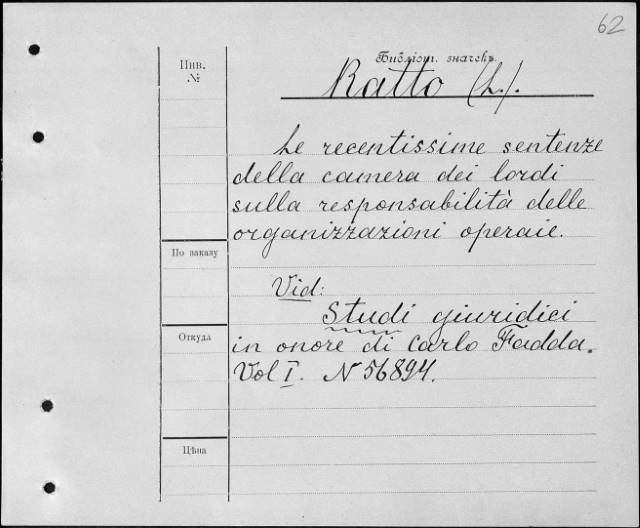 62
Библіот. значекъ
Инв.
№
Ratto (L.).
Le recentissime sentenze
della camera dei lordi
sulla responsabilità delle
organizzazioni operaie.
По заказу
Vid:
Studi giuridici
Откуда
in onore di Carlo Fadda.
Vol I. N 56894.
Цѣна